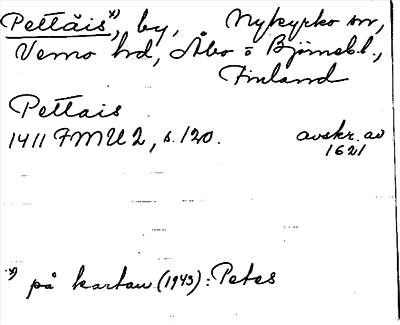 Pettäis*), by, Nykyrko sn,
Vemo hd, Åbo o Björneb.l.,
Finland
Pettais
1411 FMU 2, s. 120. avskr. av
1621
*) på kartan (1943): Petes